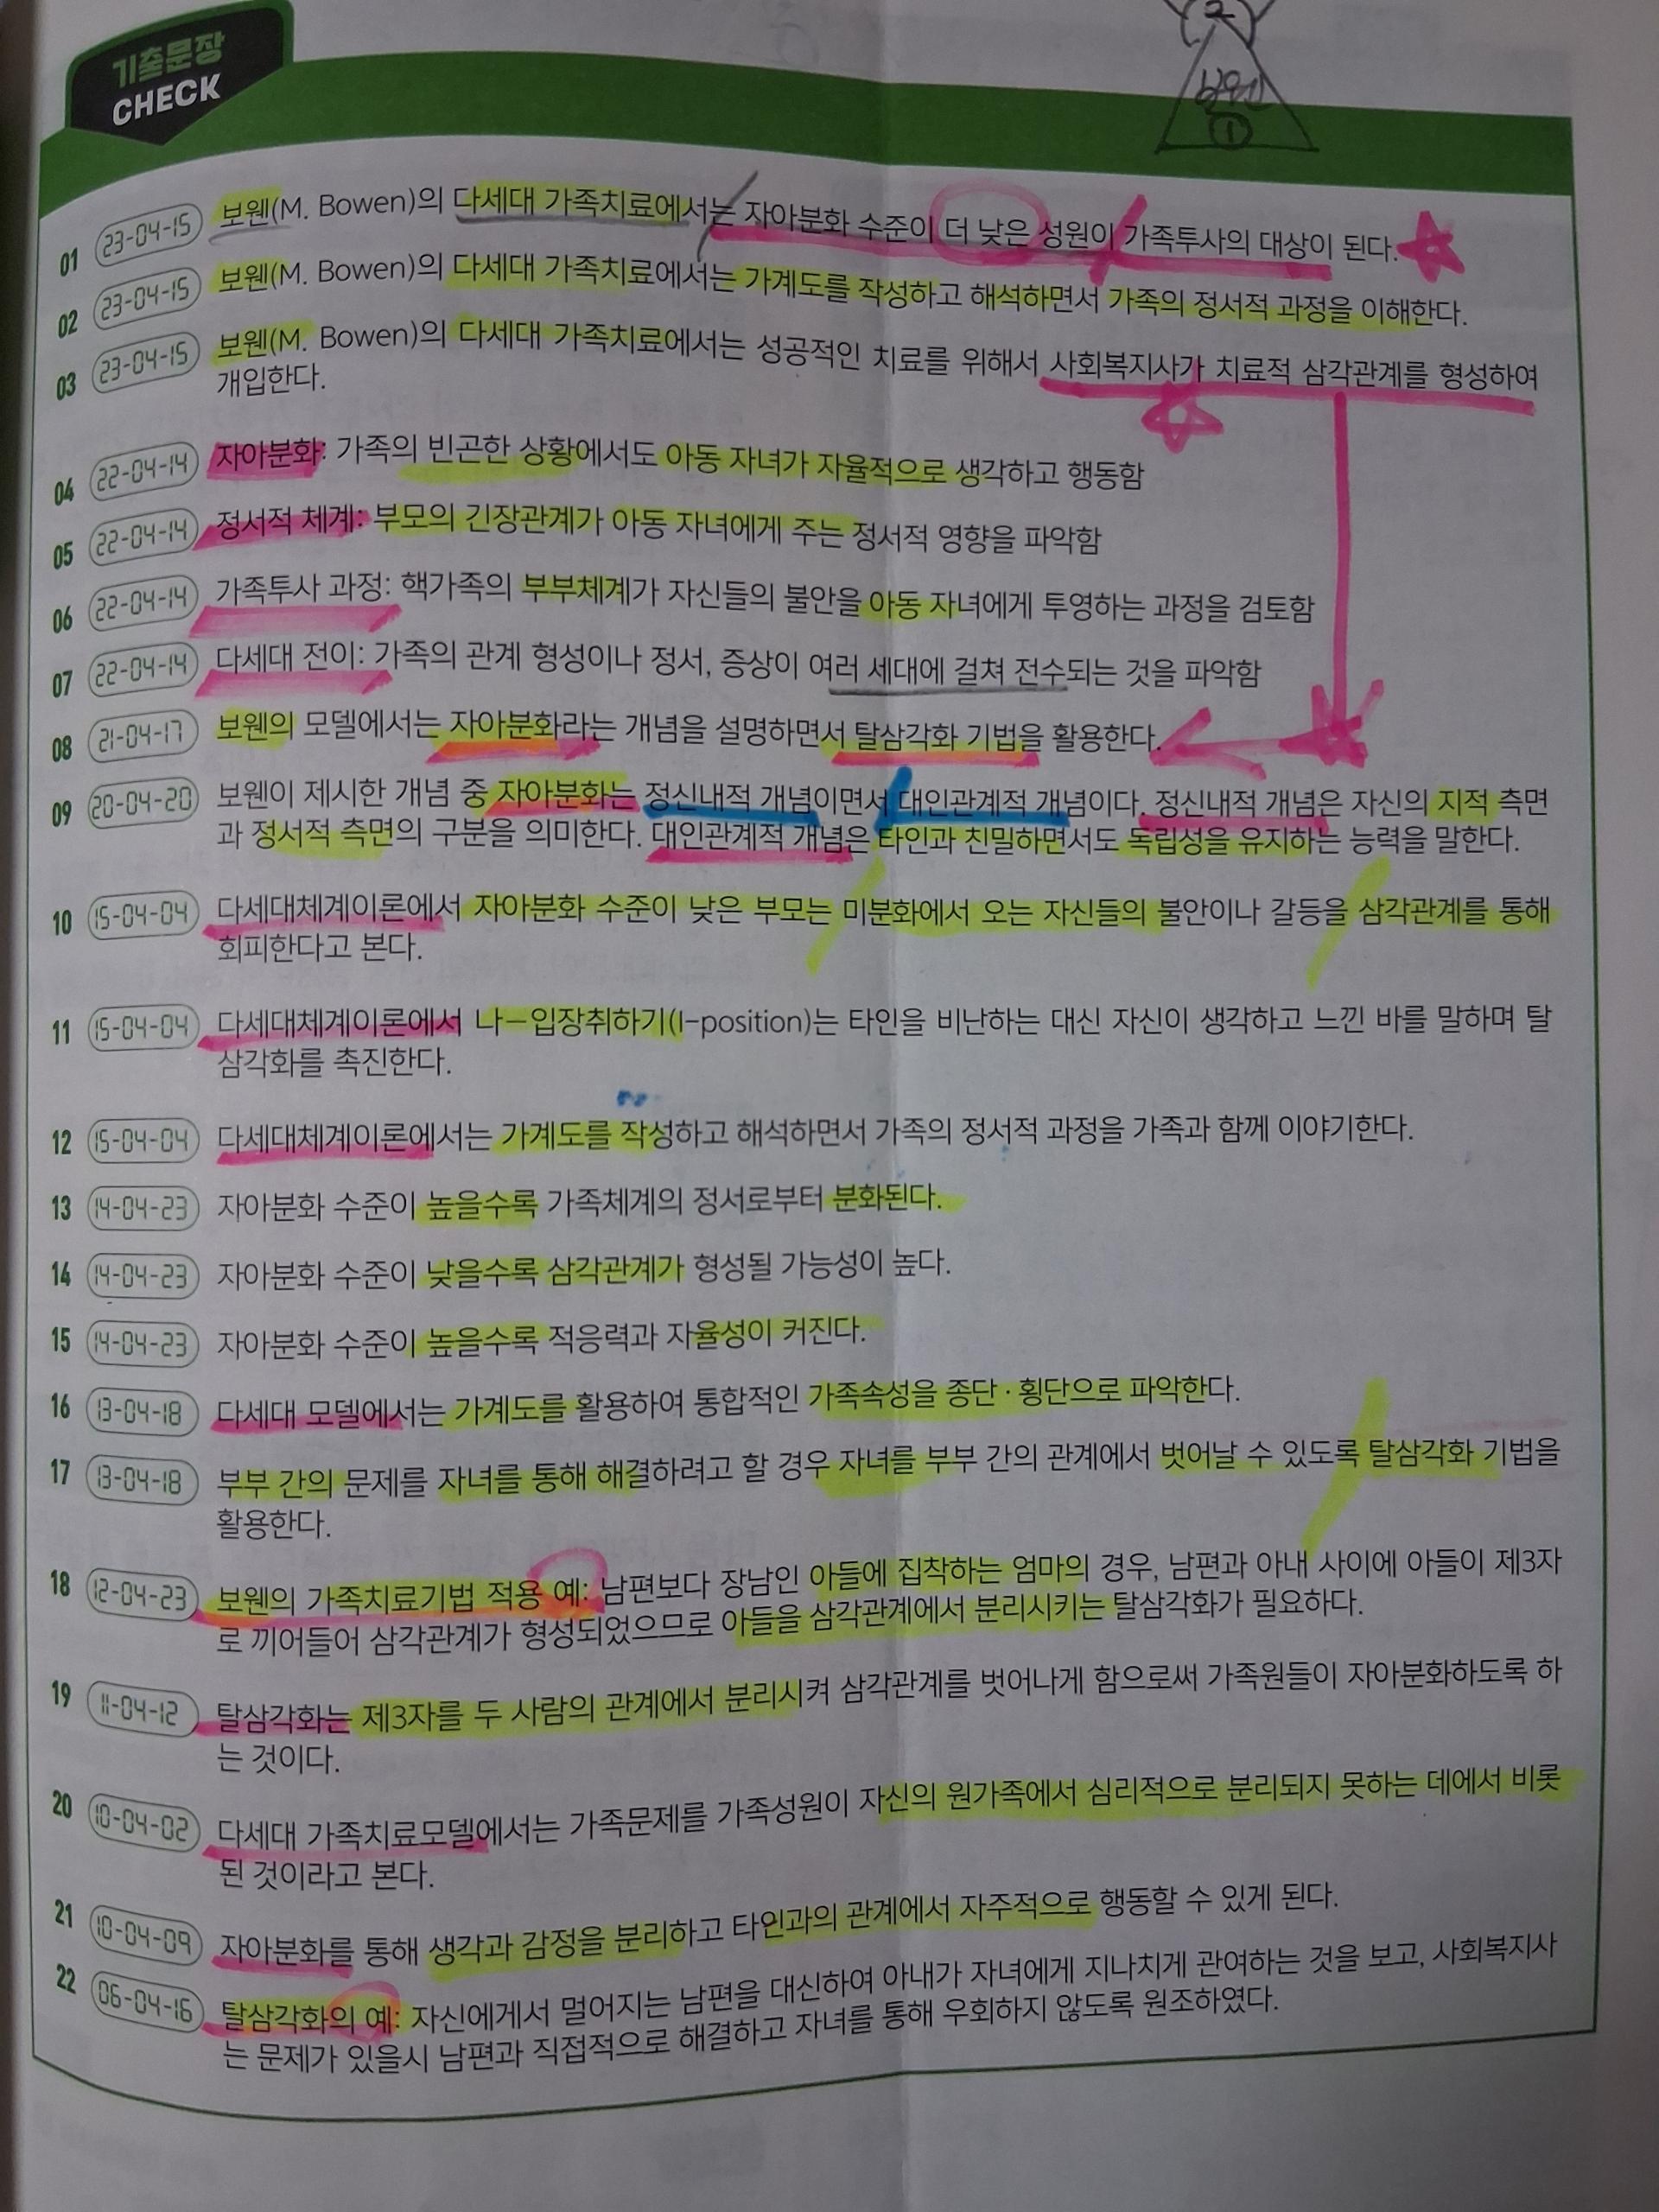 기출문장
CHECK
2
보웬
①
01 23-04-15 보웬(M. Bowen)의 다세대 가족치료에서는 자아분화 수준이 더 낮은 성원이 가족투사의 대상이 된다.
02 23-04-15 보웬(M. Bowen)의 다세대 가족치료에서는 가계도를 작성하고 해석하면서 가족의 정서적 과정을 이해한다.
03 23-04-15 보웬(M. Bowen)의 다세대 가족치료에서는 성공적인 치료를 위해서 사회복지사가 치료적 삼각관계를 형성하여
개입한다.
04 22-04-14 자아분화: 가족의 빈곤한 상황에서도 아동 자녀가 자율적으로 생각하고 행동함
05 22-04-14 정서적 체계: 부모의 긴장관계가 아동 자녀에게 주는 정서적 영향을 파악함
06 22-04-14 가족투사 과정: 핵가족의 부부체계가 자신들의 불안을 아동 자녀에게 투영하는 과정을 검토함
07 22-04-14 다세대 전이: 가족의 관계 형성이나 정서, 증상이 여러 세대에 걸쳐 전수되는 것을 파악함
08 21-04-17 보웬의 모델에서는 자아분화라는 개념을 설명하면서 탈삼각화 기법을 활용한다.
09 20-04-20 보웬이 제시한 개념 중 자아분화는 정신내적 개념이면서 대인관계적 개념이다. 정신내적 개념은 자신의 지적 측면
과 정서적 측면의 구분을 의미한다. 대인관계적 개념은 타인과 친밀하면서도 독립성을 유지하는 능력을 말한다.
10 15-04-04 다세대체계이론에서 자아분화 수준이 낮은 부모는 미분화에서 오는 자신들의 불안이나 갈등을 삼각관계를 통해
회피한다고 본다.
11 15-04-04 다세대체계이론에서 나-입장취하기(I-position)는 타인을 비난하는 대신 자신이 생각하고 느낀 바를 말하며 탈
삼각화를 촉진한다.
12 15-04-04 다세대체계이론에서는 가계도를 작성하고 해석하면서 가족의 정서적 과정을 가족과 함께 이야기한다.
13 14-04-23 자아분화 수준이 높을수록 가족체계의 정서로부터 분화된다.
14 14-04-23 자아분화 수준이 낮을수록 삼각관계가 형성될 가능성이 높다.
15 14-04-23 자아분화 수준이 높을수록 적응력과 자율성이 커진다.
16 13-04-18 다세대 모델에서는 가계도를 활용하여 통합적인 가족속성을 종단·횡단으로 파악한다.
17 13-04-18 부부 간의 문제를 자녀를 통해 해결하려고 할 경우 자녀를 부부 간의 관계에서 벗어날 수 있도록 탈삼각화 기법을
활용한다.
18 12-04-23 보웬의 가족치료기법 적용 예: 남편보다 장남인 아들에 집착하는 엄마의 경우, 남편과 아내 사이에 아들이 제3자
로 끼어들어 삼각관계가 형성되었으므로 아들을 삼각관계에서 분리시키는 탈삼각화가 필요하다.
19 11-04-12 탈삼각화는 제3자를 두 사람의 관계에서 분리시켜 삼각관계를 벗어나게 함으로써 가족원들이 자아분화하도록 하
는 것이다.
20 10-04-02 다세대 가족치료모델에서는 가족문제를 가족성원이 자신의 원가족에서 심리적으로 분리되지 못하는 데에서 비롯
된 것이라고 본다.
21 10-04-09 자아분화를 통해 생각과 감정을 분리하고 타인과의 관계에서 자주적으로 행동할 수 있게 된다.
22 06-04-16 탈삼각화의 예: 자신에게서 멀어지는 남편을 대신하여 아내가 자녀에게 지나치게 관여하는 것을 보고, 사회복지사
는 문제가 있을시 남편과 직접적으로 해결하고 자녀를 통해 우회하지 않도록 원조하였다.